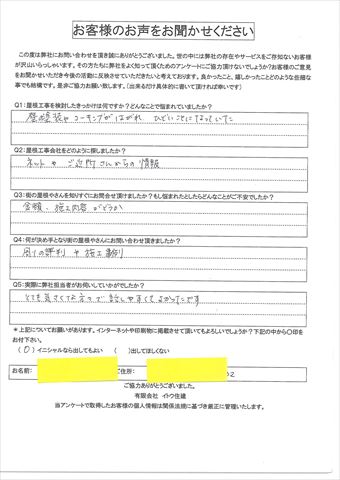 お客様のお声をお聞かせください
この度は弊社にお問い合わせを頂き誠にありがとうございました。世の中には弊社の存在やサービスをご存知ないお客様
が沢山いらっしゃいます。その方たちに弊社をよく知って頂くためのアンケートにご協力頂けないでしょうか？お客様のご意見
をお聞かせいただき今後の活動に反映させていただきたいと考えております。良かったこと、嬉しかったことどのような些細な
事でも結構です。是非ご協力お願い致します。（出来るだけ具体的に書いて頂ければ幸いです）
Q1：屋根工事を検討したきっかけは何ですか？どんなことで悩まれていましたか？
壁塗装やコーキングがはがれ ひどいことになっていた
Q2：屋根工事会社をどのように探しましたか？
ネットや ご近所さんからの情報
Q3：街の屋根やさんを知りすぐにお問合せ頂けましたか？もし悩まれたとしたらどんなことがご不安でしたか？
金額、施工内容がどうか
Q4：何が決め手となり街の屋根やさんにお問い合わせ頂きましたか？
周りの評判や施工事例
Q5：実際に弊社担当者がお伺いしていかがでしたか？
とても 話しやすくてよかったです
＊上記についてお願いがあります。インターネットや印刷物に掲載させて頂いてもよろしいでしょうか？下記の中から〇印を
お付下さい。
（〇）イニシャルなら出してもよい （ ）出してほしくない
お名前： ご住所：
ご協力ありがとうございました。
有限会社 イトウ住建
当アンケートで取得したお客様の個人情報は関係法規に基づき厳正に管理いたします。